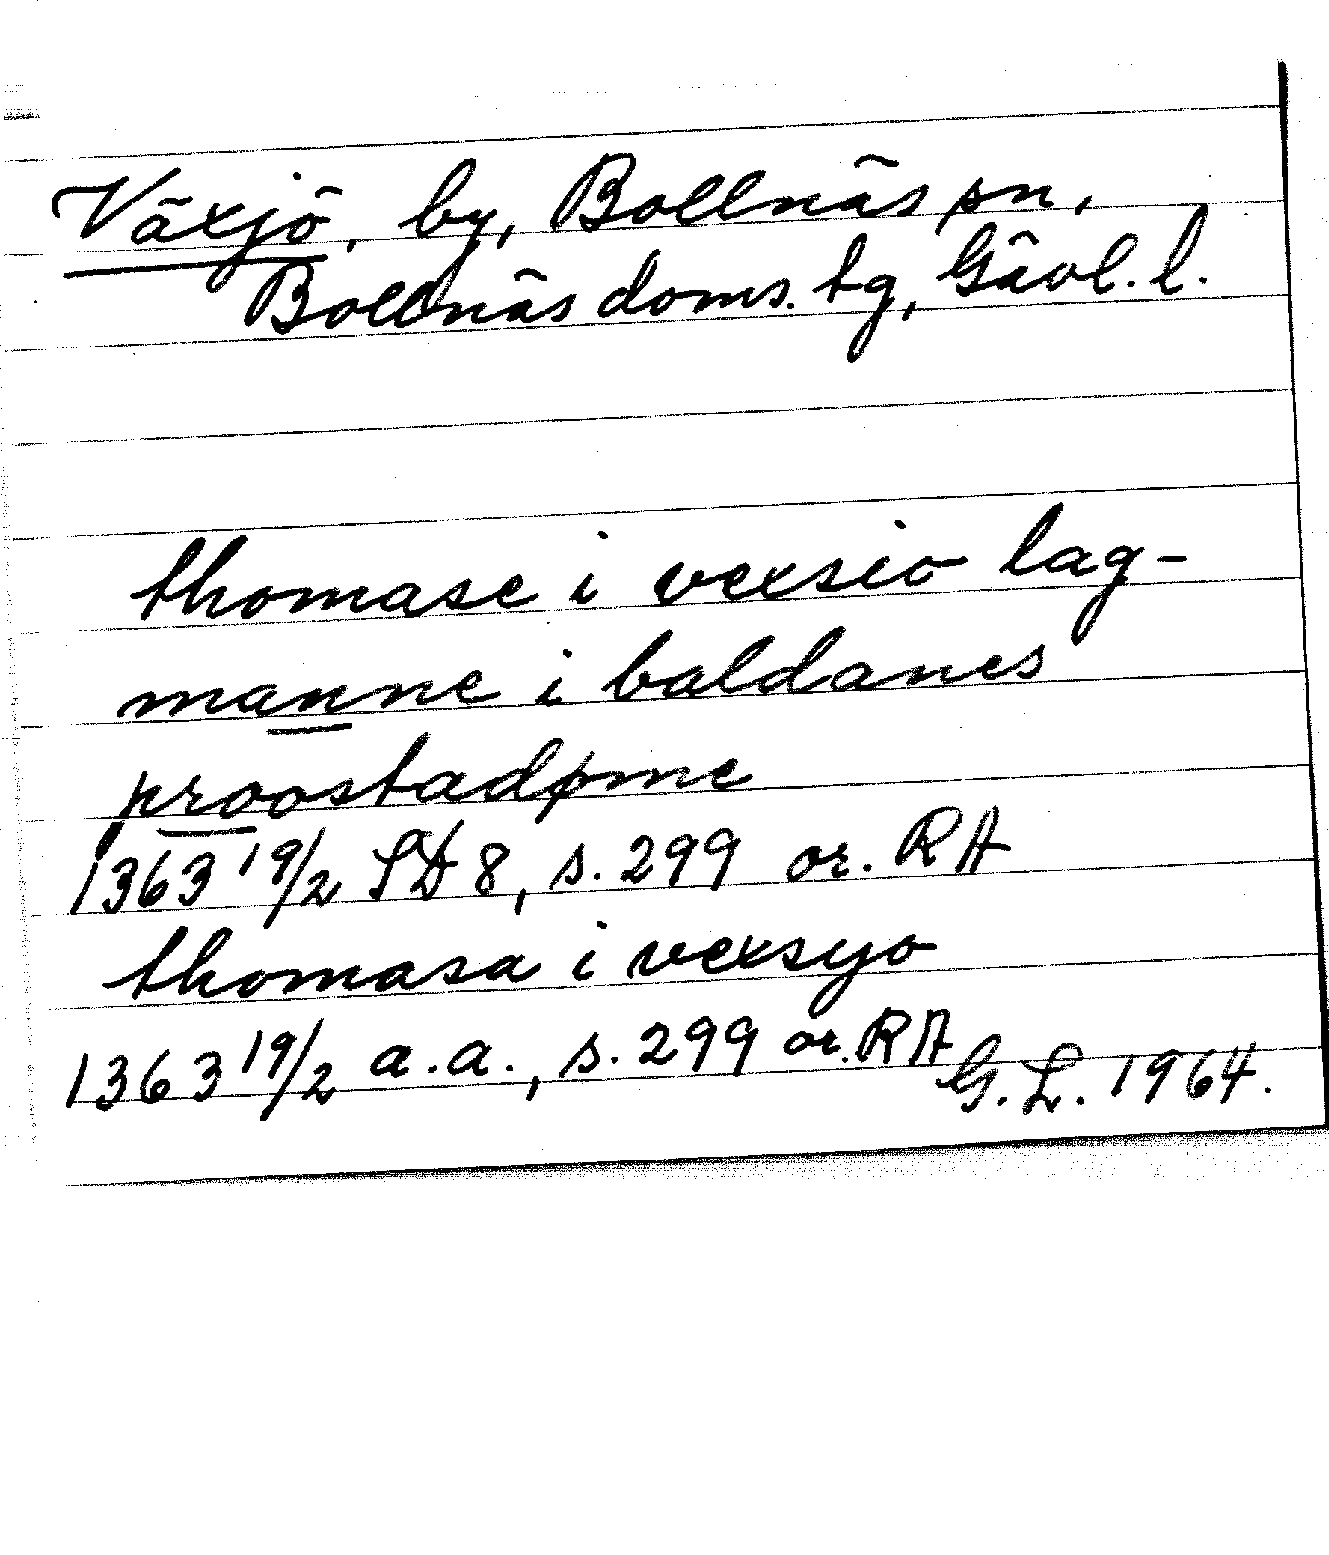 Växjö, by, Bollnäs sn,
Bollnäs doms. tg, Gävl. l.
thomase i vexsio lag-
manne i baldanes
proostadøme
1363 19/2 SD 8, s. 299 or. RA
thomasa i vexsyo
1363 19/2 a.a., s. 299 or. RA
G. L. 1964.